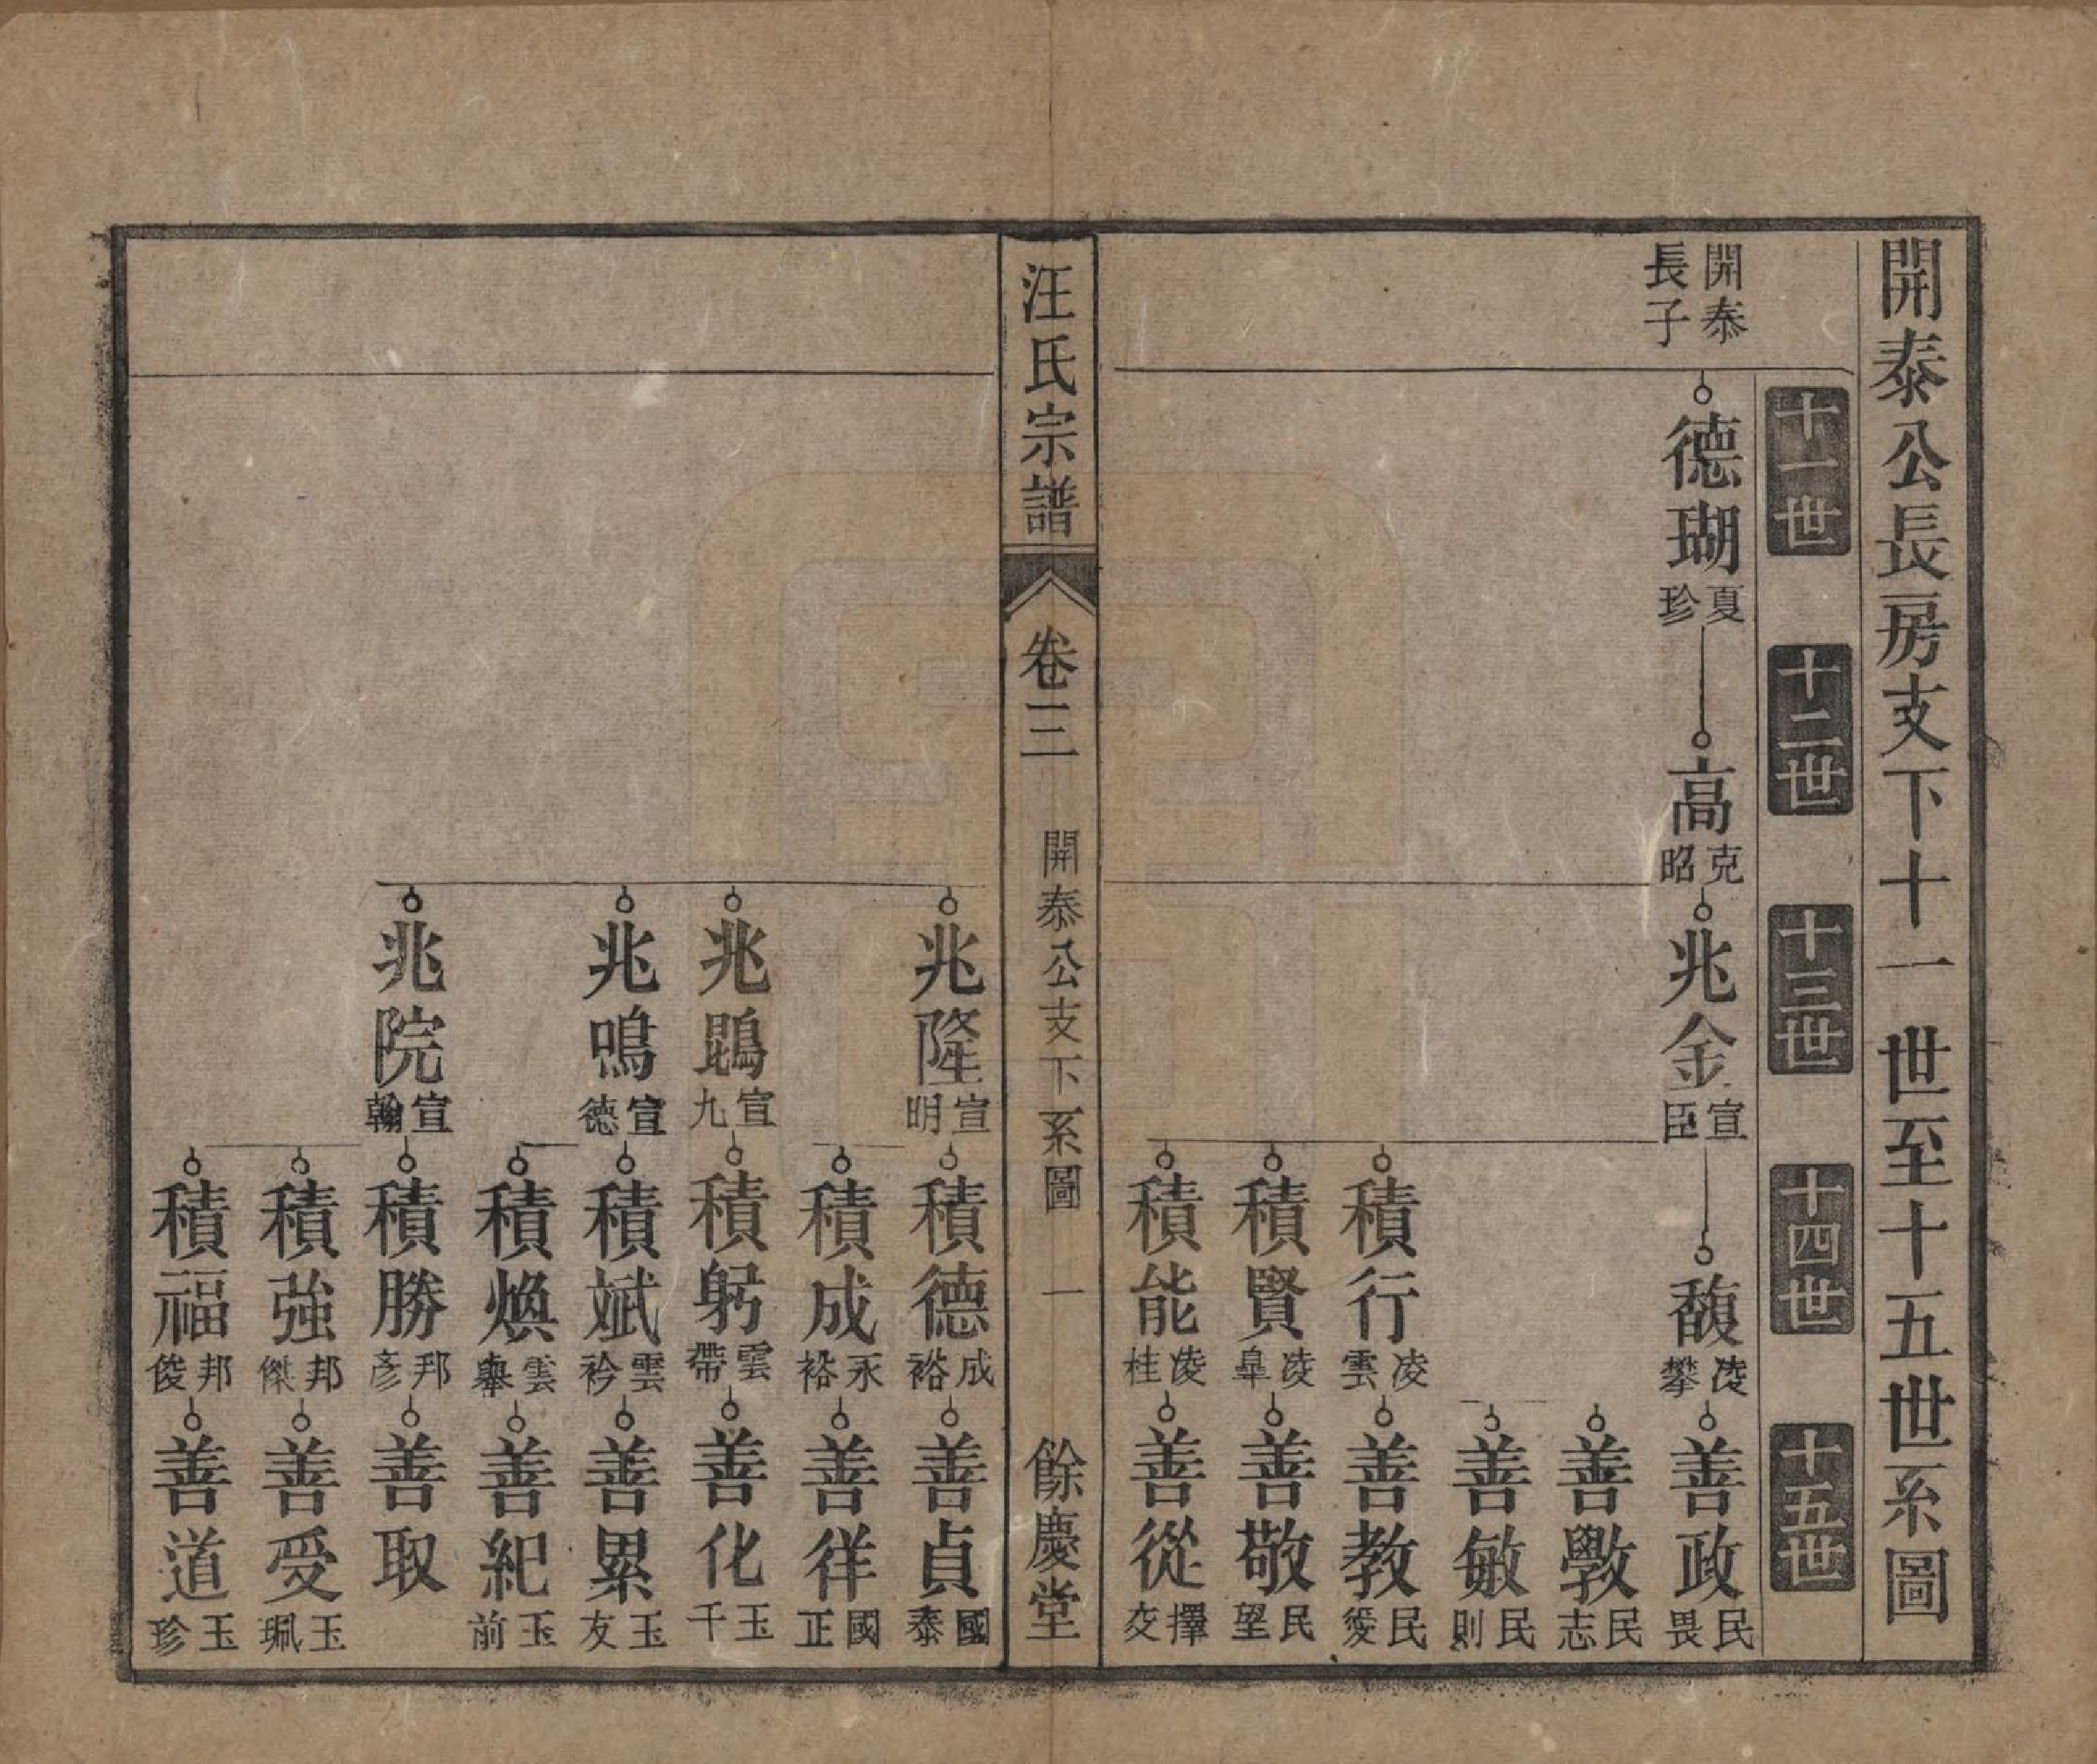 開泰公長房支下十一世至十五世系圖
十一世
十二世
十三世
十四世
十五世
開泰
長子
德瑚
夏珍
高
克昭
兆金
宣臣
馥
凌攀
善政
民畏
善斆
民志
善敏
民則
積行
凌雲
善教
民愛
積賢
凌皐
善敬
民望
積能
凌桂
善從
擇交
汪氏宗譜
卷三
開泰公支下系圖
一
餘慶堂
兆隆
宣明
積德
成裕
善貞
國泰
積成
永裕
善徉
國正
兆鵾
宣九
積躬
雲帶
善化
玉千
兆鳴
宣德
積斌
雲衿
善累
玉友
積煥
雲舉
善紀
玉前
兆院
宣翰
積勝
邦彥
善取
積強
邦傑
善受
玉珮
積福
邦俊
善道
玉珍